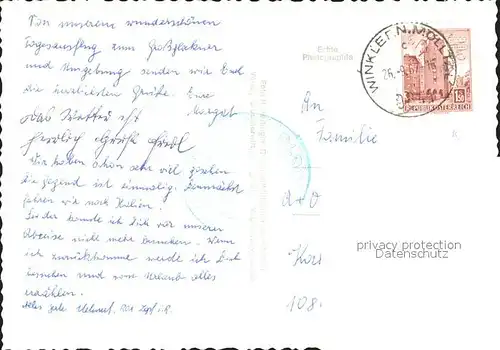 Von unserem wunderschönen
Tagesausflug zum Großglockner
und Umgebung senden wir Euch
die herzlichsten Grüße. Eure
Margot
das Wetter ist
herrlich Gruß
Wir haben schon sehr viel gesehen
die Gegend ist einmalig.
fahren wir nach Italien.
Leider konnte ich Dich vor unserer
Abreise nicht mehr besuchen. Wenn
ich zurückkomme werde ich Dich
besuchen und vom Urlaub alles
erzählen.
Alles Gute
Echte
Photographie
WINKLERN, MÖLLTAL
26.-9.67.-16
REPUBLIK ÖSTERREICH
An
Familie
A + O
108.
privacy protection
Datenschutz